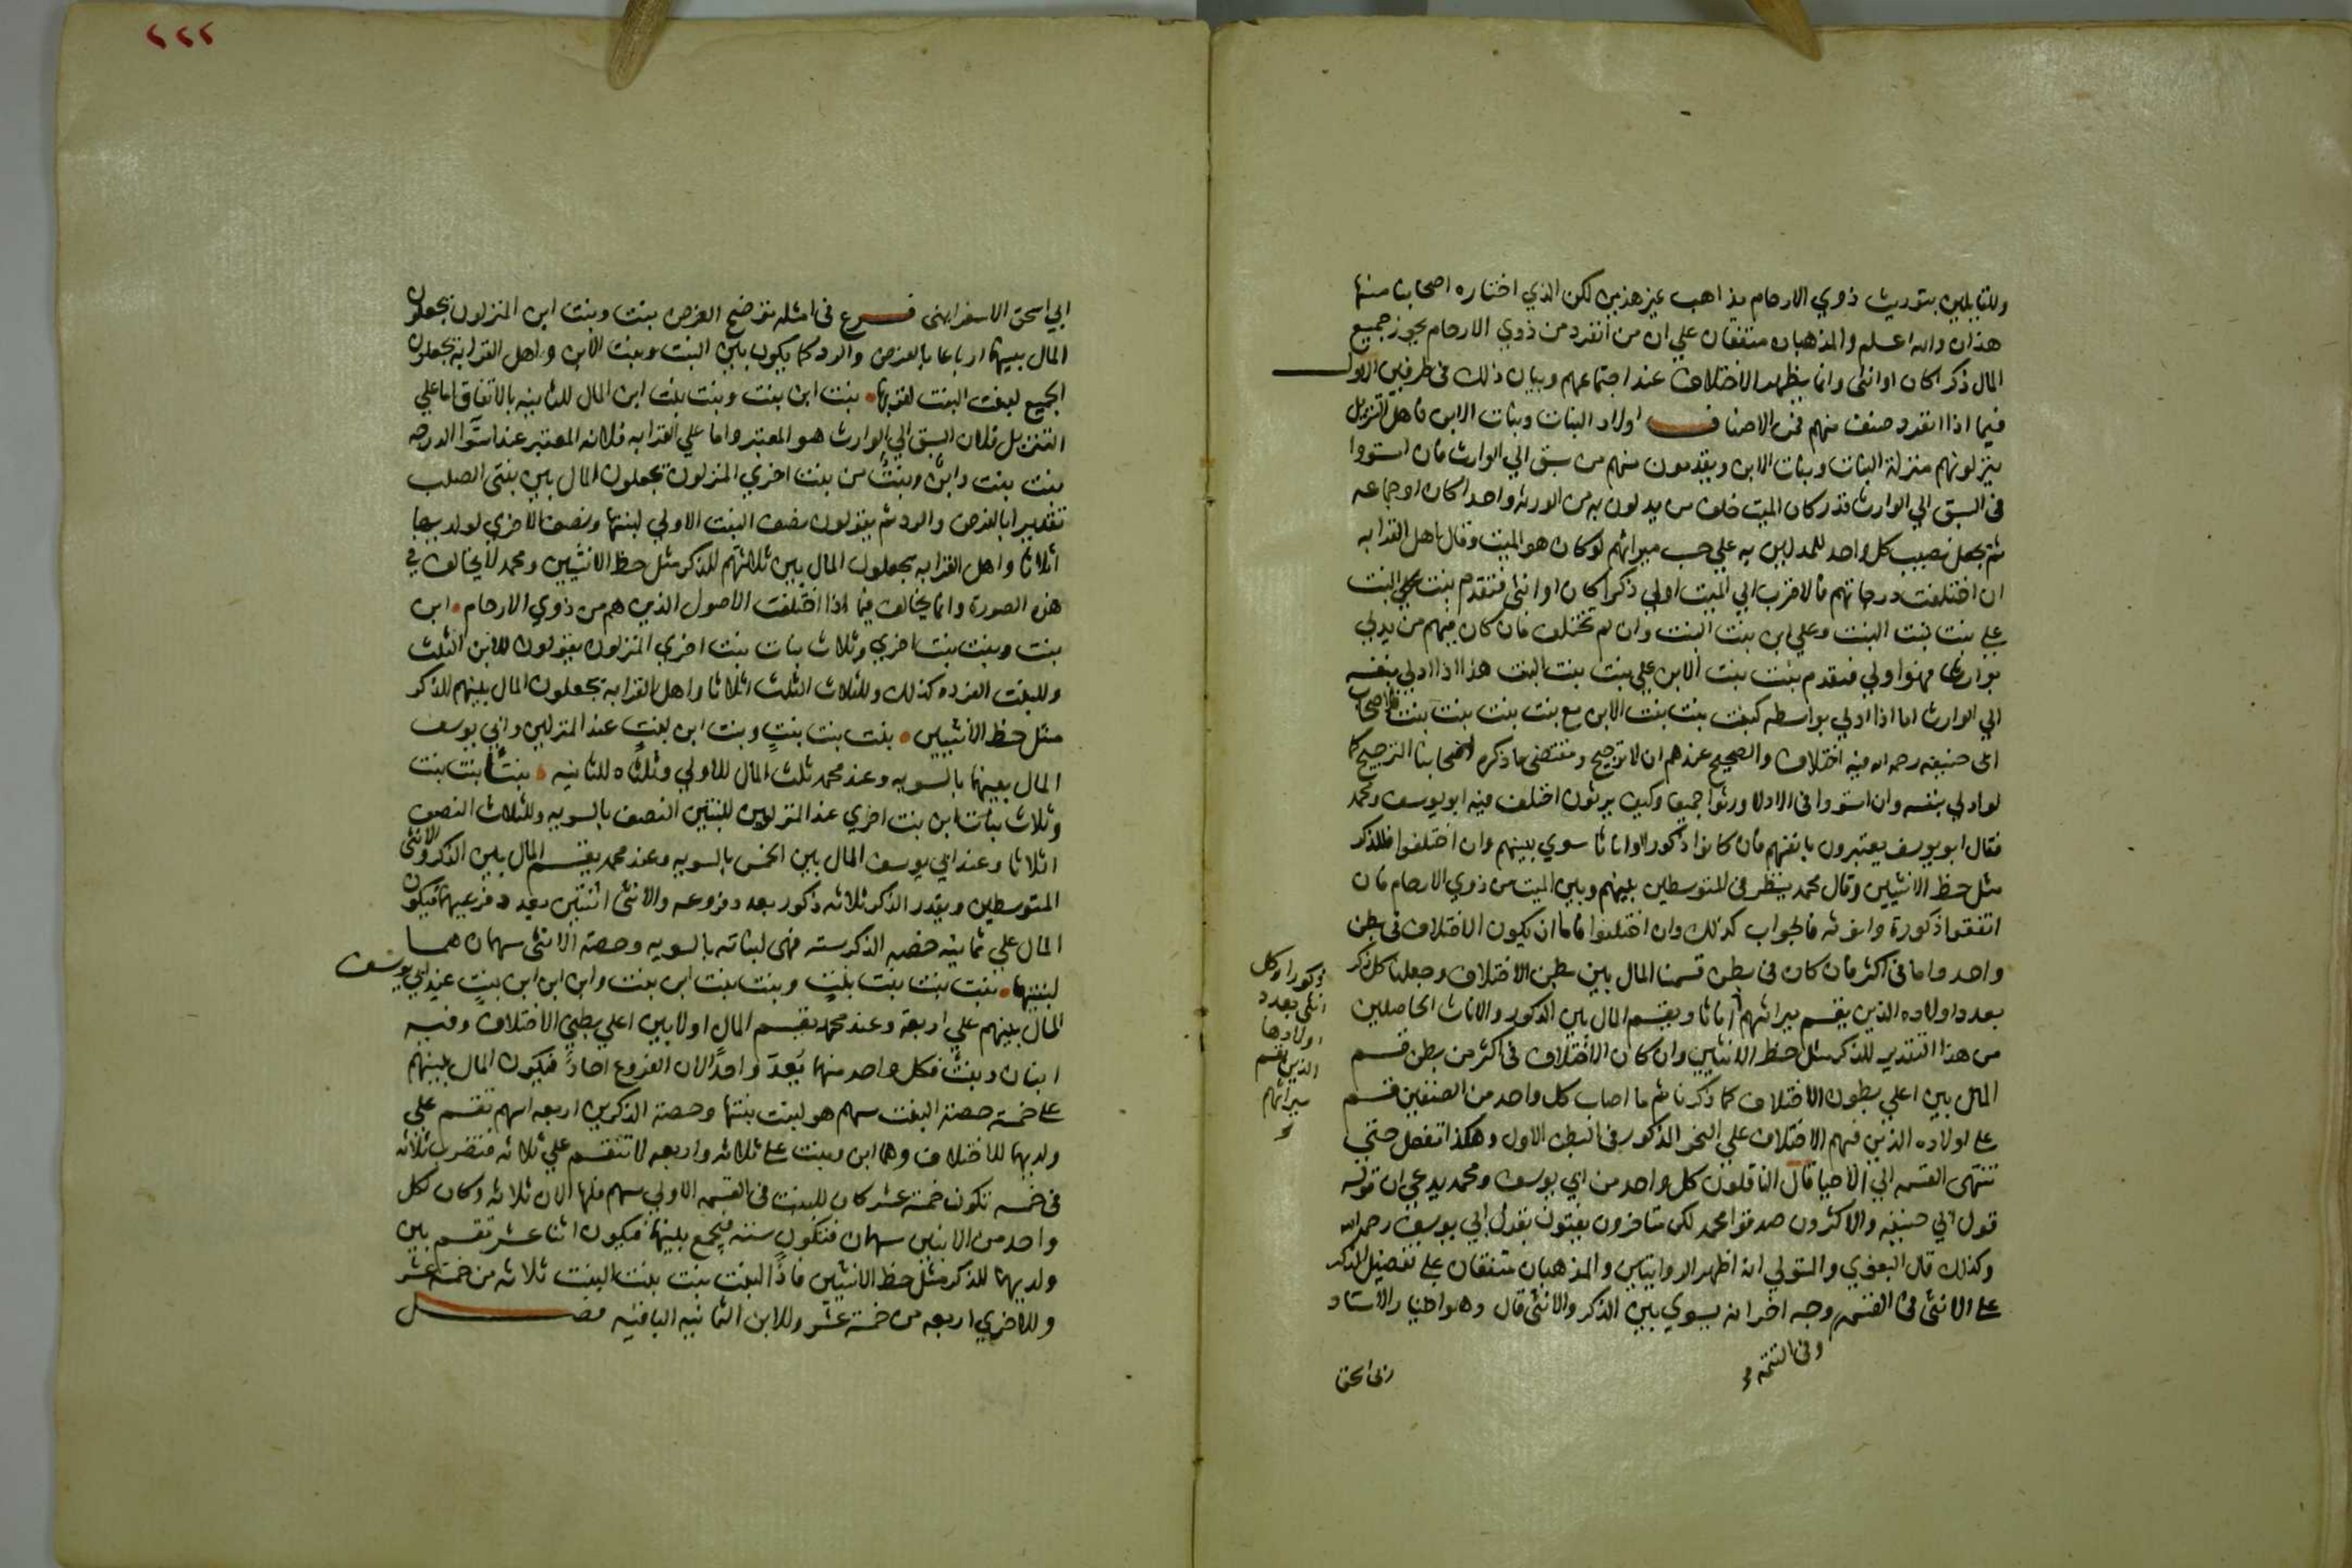 وللقايلين بتوريث ذوي الارحام مذاهب غير هذين لكن الذي اختاره اصحابنا منها
هذان والله اعلم والمذهبان متفقان علي ان من انفرد من ذوي الارحام يحوز جميع
المال ذكرا كان او انثى وانما يظهر الاختلاف عند اجتماعهم وبيان ذلك في طرفين الاول
فيما اذا انفرد صنف منهم فمن الاصناف اولاد البنات وبنات الابن فاهل التنزيل
ينزلونهم منزلة البنات وبنات الابن ويقدمون منهم من سبق الي الوارث فان استووا
في السبق الي الوارث قدر كان الميت خلف من يدلون به من الورثه واحدا كان او جماعه
ثم يجعل نصيب كل واحد للمدلين به علي حسب ميراثهم لو كان هو الميت وقال اهل القرابه
ان اختلفت درجاتهم فالاقرب الي الميت اولي ذكرا كان او انثى فتقدم بنت البنت
على بنت بنت البنت وعلي ابن بنت البنت وان لم تختلف فان كان فيهم من يدلي
بوارث فهو اولي فتقدم بنت بنت الابن علي بنت بنت البنت هذا اذا ادلي بنفسه
الي الوارث اما اذا ادلي بواسطه كبنت بنت بنت الابن مع بنت بنت بنت البنت فلاصحاب
ابي حنيفه رحمه الله فيه اختلاف والصحيح عندهم ان لا ترجيح ومقتضى ما ذكره اصحابنا الترجيح كما
لو ادلي بنفسه وان استووا في الادلا ورثوا جميعا وكيف يرثون اختلف فيه ابو يوسف ومحمد
فقال ابو يوسف يعتبرون بانفسهم فان كانوا ذكورا او اناثا سوي بينهم وان اختلفوا فللذكر
مثل حظ الانثيين وقال محمد ينظر في المتوسطين بينهم وبين الميت من ذوي الارحام فان
اتفقوا ذكورة وانوثه فالجواب كذلك وان اختلفوا فاما ان يكون الاختلاف في بطن
واحد واما في اكثر فان كان في بطن قسمنا المال بين بطن الاختلاف وجعلنا كل ذكر
ذكورا وكل
انثى بعدد
اولادها
الذين يقسم
ميراثهم
بعدد اولاده الذين يقسم ميراثهم اناثا ويقسم المال بين الذكور والاناث الحاصلين
من هذا التقدير للذكر مثل حظ الانثيين وان كان الاختلاف في اكثر من بطن قسم
المال بين اعلي بطون الاختلاف كما ذكرنا ثم ما اصاب كل واحد من الصنفين قسم
على اولاده الذين فيهم الاختلاف علي النحو المذكور في البطن الاول وهكذا تفعل حتي
تنتهي القسمه الي الاحيا قال الناقلون كل واحد من ابي يوسف ومحمد يدعي ان قوله
قول ابي حنيفه والاكثرون صدقوا محمد لكن متاخرون يفتون بقول ابي يوسف رحمه الله
وكذلك قال البغوي والمتولي انه اظهر الروايتين والمذهبان متفقان على تفضيل الذكر
على الانثى في القسمه وجه اخر انه يسوي بين الذكر والانثى قال وهو اختيار الاستاد
وفي التتمه
ابي اسحق
٢٢٢
ابي اسحق الاسفراينى فرع في امثله توضح الغرض بنت وبنت ابن المنزلون يجعلون
المال بينهما ارباعا بالفرض والرد كما يكون بين البنت وبنت الابن واهل القرابة يجعلون
الجميع لبنت البنت لقربها بنت ابن بنت وبنت بنت ابن المال للثانيه بالاتفاق اما علي
التنزيل فلان السبق الي الوارث هو المعتبر واما علي القرابه فلانه المعتبر عند استوا الدرجه
بنت بنت وابن وبنت من بنت اخري المنزلون يجعلون المال بين بنتى الصلب
تقديرا بالفرض والرد ثم يقولون نصف البنت الاولي لبنتها ونصف الاخري لولديها
اثلاثا واهل القرابه يجعلون المال بين ثلاثتهم للذكر مثل حظ الانثيين ومحمد لا يخالف في
هذه الصورة وانما يخالف فيما اذا اختلفت الاصول الذين هم من ذوي الارحام ابن
بنت وبنت بنت اخري وثلاث بنات بنت اخري المنزلون يقولون للابن الثلث
وللبنت الفرده كذلك وللثلاث الثلث اثلاثا واهل القرابه يجعلون المال بينهم للذكر
مثل حظ الانثيين بنت بنت بنت وبنت ابن بنت عند المنزلين وابي يوسف
المال بينهما بالسويه وعند محمد ثلث المال للاولي وثلثاه للثانيه بنتا بنت بنت
وثلاث بنات ابن بنت اخري عند المنزلين للبنتين النصف بالسويه وللثلاث النصف
اثلاثا وعند ابي يوسف المال بين الخمس بالسويه وعند محمد يقسم المال بين الذكر والانثى
المتوسطين ويقدر الذكر ثلاثه ذكور بعدد فروعه والانثى انثتين بعدد فرعيها فيكون
المال علي ثمانيه حصه الذكر سته فهى لبناته بالسويه وحصة الانثى سهمان هما
لبنتيها بنت بنت بنت بنت وبنت بنت ابن بنت وابن ابن ابن بنت عند ابي يوسف
المال بينهم علي اربعة وعند محمد يقسم المال اولا بين اعلي بطني الاختلاف وفيه
ابنان وبنت فكل واحد منهما يعد واحدا لان الفروع احاد فيكون المال بينهم
على خمسة حصة البنت سهم هو لبنت بنتها وحصة الذكرين اربعه اسهم تقسم علي
ولديهما للاختلاف وهما ابن وبنت على ثلاثه واربعه لا تنقسم علي ثلاثه فتضرب ثلاثه
في خمسه تكون خمسة عشر كان للبنت في القسمه الاولي سهم فلها الان ثلاثه وكان لكل
واحد من الابنين سهمان فتكون سته فيجمع بينهما فيكون اثنا عشر تقسم بين
ولديهما للذكر مثل حظ الانثيين فاذا لبنت بنت بنت البنت ثلاثه من خمسة عشر
وللاخري اربعه من خمسة عشر وللابن الثمانيه الباقيه فصل